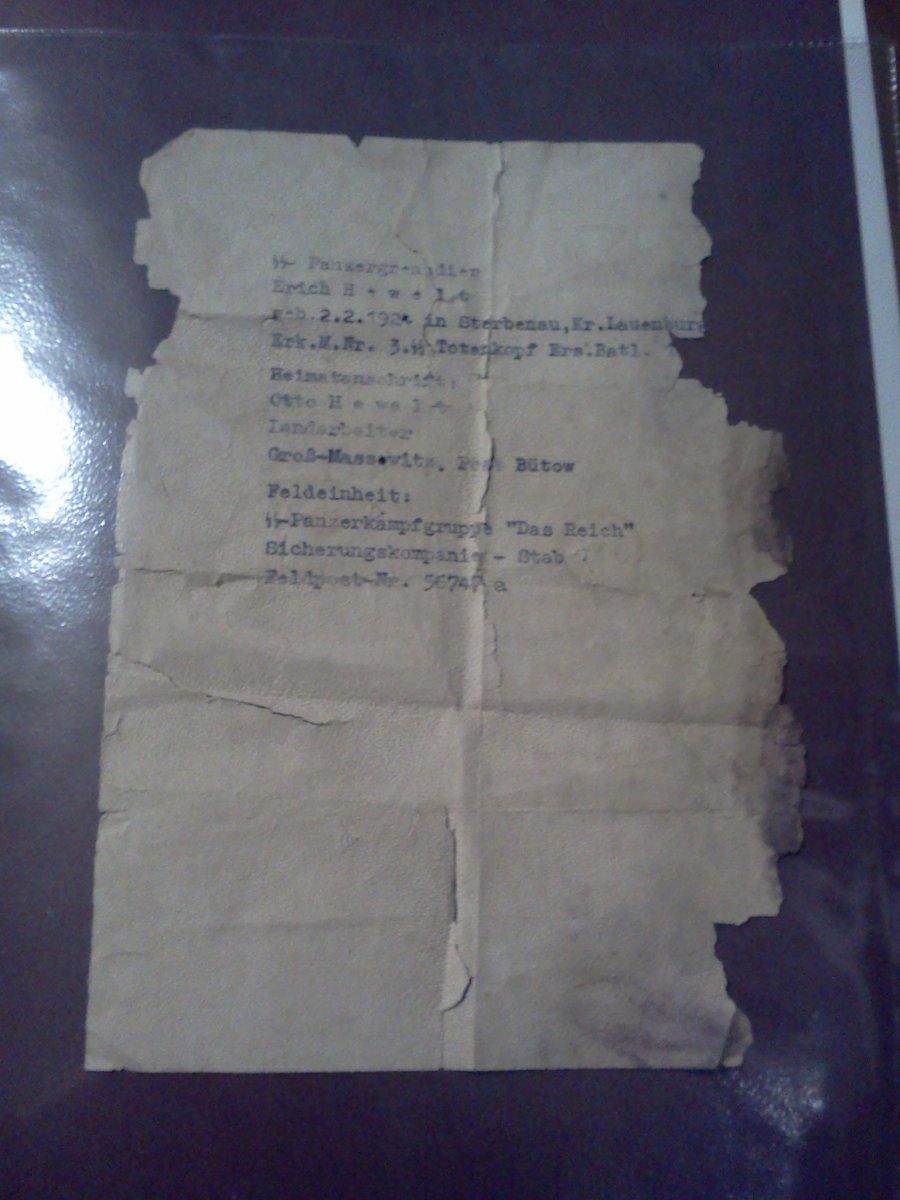 ᛋᛋ- Panzergrenadier
Erich H e w e l t
geb.2.2.192 in Sterbenau,Kr.Lauenburg
Erk.M.Nr. 3.ᛋᛋ Totenkopf Ers.Batl.
Heimatanschrift:
Otto H e w e l t
Landarbeiter
Groß-Massowitz, Post Bütow
Feldeinheit:
ᛋᛋ-Panzerkampfgruppe "Das Reich"
Sicherungskompanie - Stab
Feldpost-Nr. 56747 a